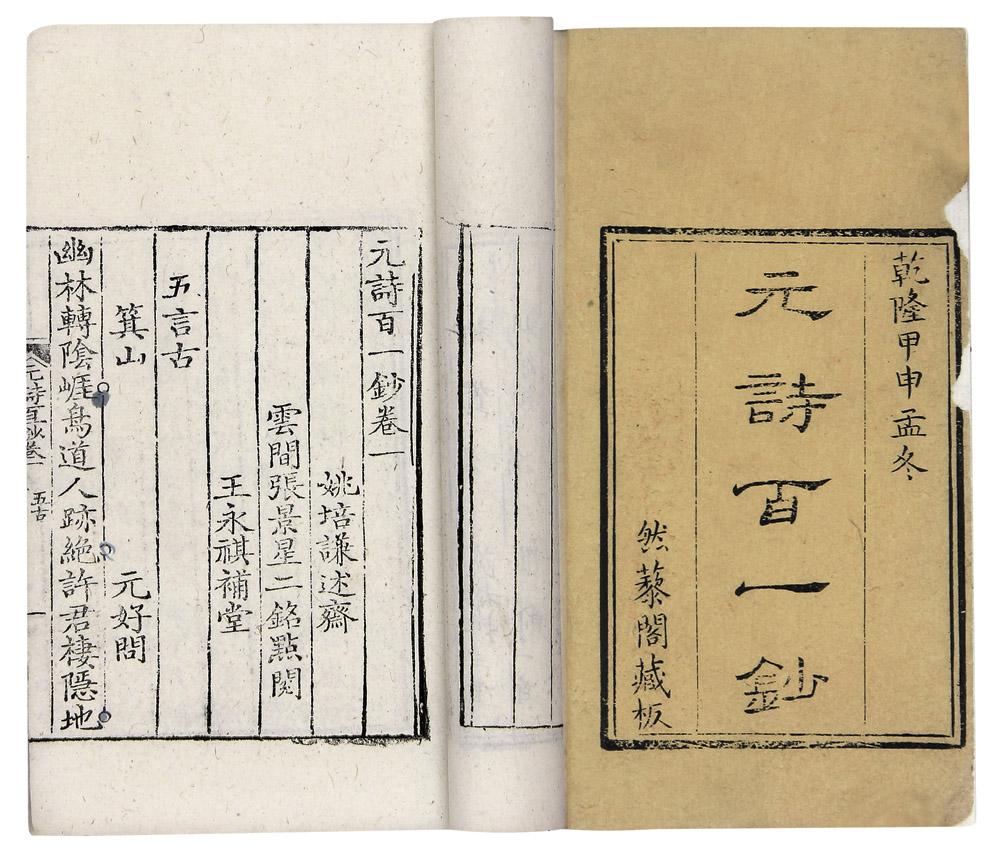 乾隆甲申孟冬
元詩百一鈔
然藜閣藏板
元詩百一鈔卷一
姚培謙述齋
雲間張景星二銘點閱
王永祺補堂
五言古
箕山
元好問
幽林轉陰崕鳥道人跡絶許君棲隱地
元詩百一鈔卷一
五古
一